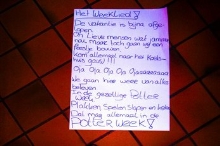 Het Weeklied
De vakantie is bijna afge-
lopen.
Oh Lieve mensen wat jammer
nou maar toch gaan wij een
feestje bouwen
kom allemaal naar het Kools-
huis gauw!!!
Oja Oja Oja Oja
We gaan hier weer van alles
beleven
In de gezellige
Spelen Slapen en
Dat mag allemaal in de
POLTERWEEK